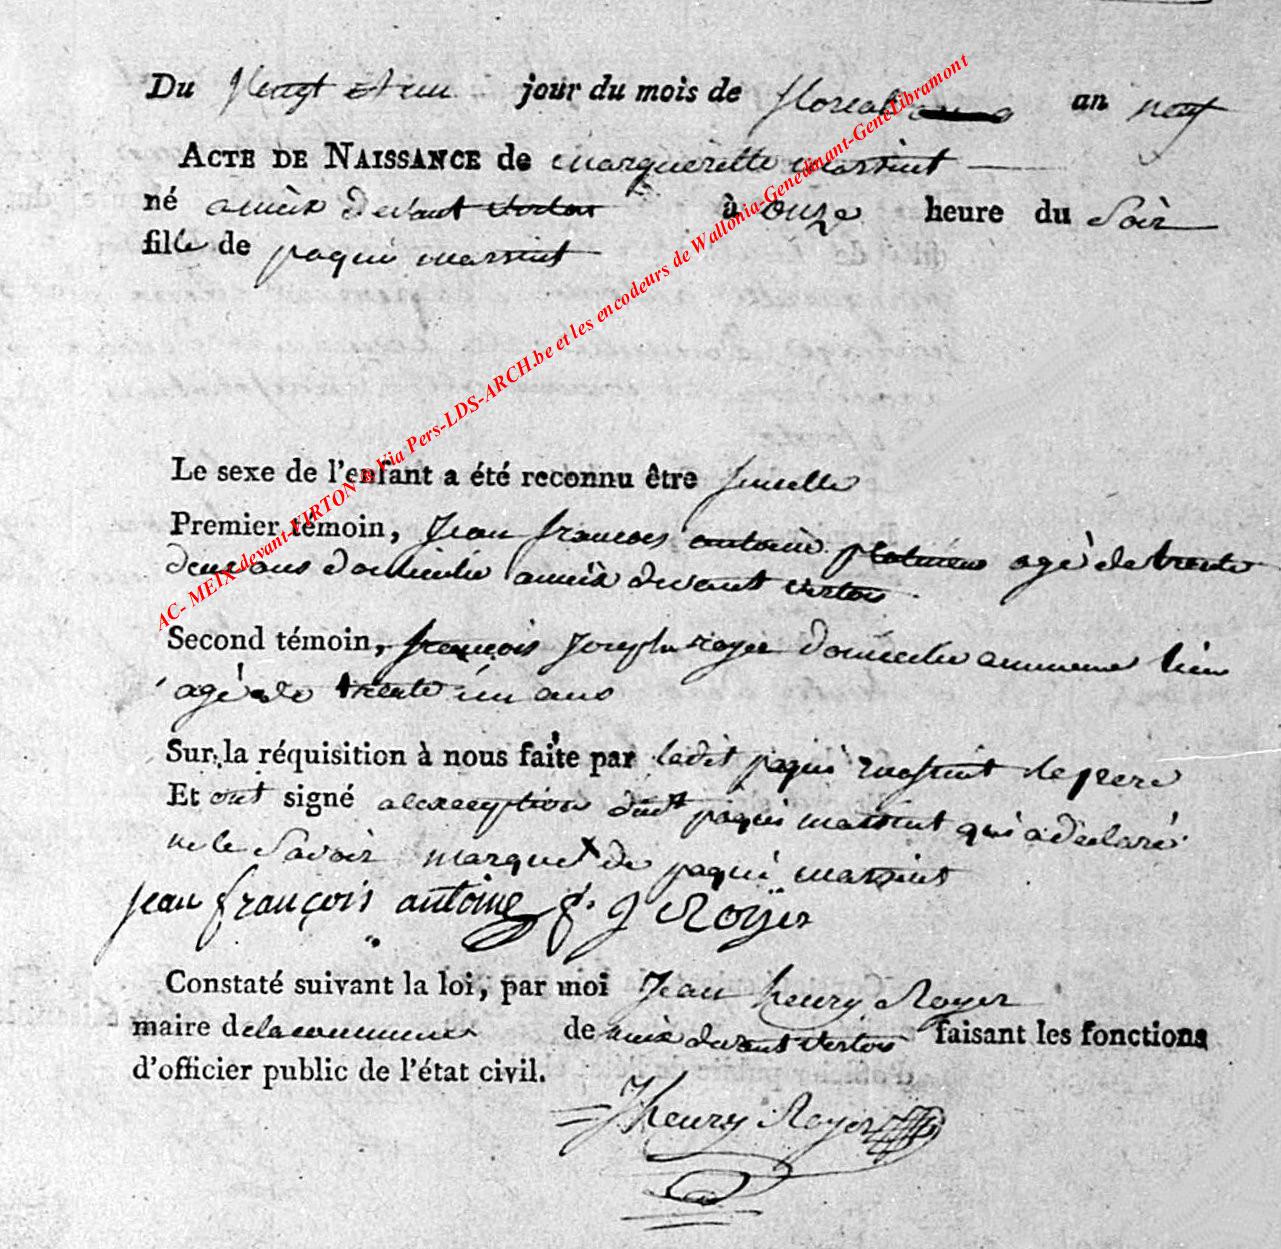 Du vingt et un jour du mois de floreal an neuf
ACTE DE NAISSANCE de margueritte massint
né a meix devant virton à onze heure du Soir
fille de paqui massint
Le sexe de l'enfant a été reconnu être femelle
Premier témoin, Jean francois antoine agé de trente
deux ans domicilié a meix devant virton
Second témoin, françois Joseph royer domicilié au meme lieu
agé de trente un ans
Sur la réquisition à nous faite par ledit paqui massint le pere
Et ont signé a lexception dud paqui massint qui a déclaré
ne le Savoir marque X de paqui massint
jean françois antoine f. J Royer
Constaté suivant la loi, par moi Jean henry Royer
maire de la commune de meix devant virton faisant les fonctions
d'officier public de l'état civil.
J henry Royer
AC- MEIX-devant-VIRTON Via Pers-LDS-ARCH.be et les encodeurs de Wallonia-Genedinant-GeneLibramont